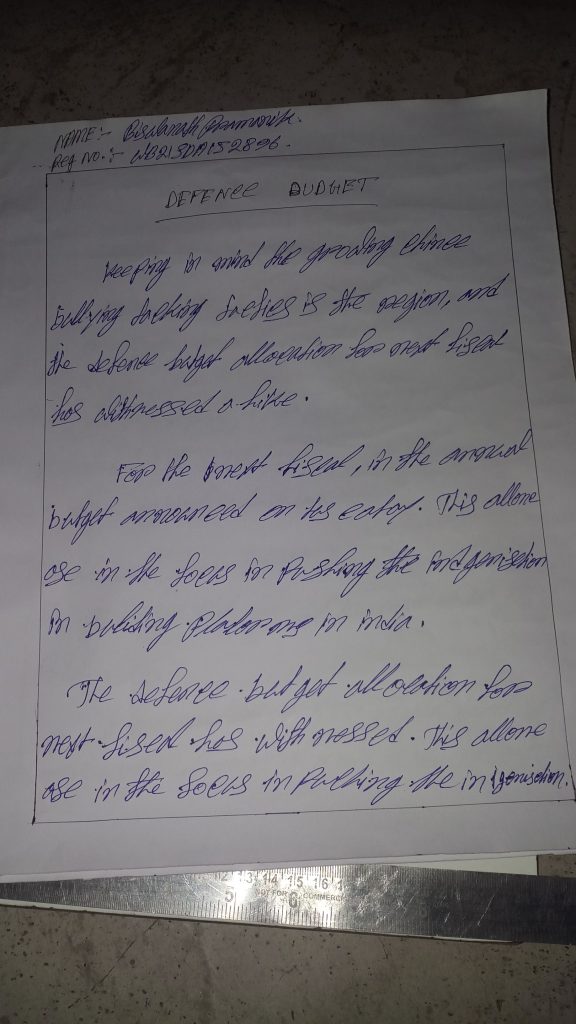 NAME:- Biswanath Pramanik.
Reg No.:- WB21SDA152896.
DEFENCE BUDGET
Keeping in mind the growing chinee
bullying tacking tactics is the region, and
the defence butget allocation for next fiscal
has withnessed a hike.
For the next fiscal, in the annual
butget announced on This allone
age in the focus in pushing the indgenisetion
in buliding in india.
The defence butget allocation for
next fiscal has withnessed. This allone
age in the focus in the
12 13 14 15 16 1
5 6
NOT FOR COMMERC